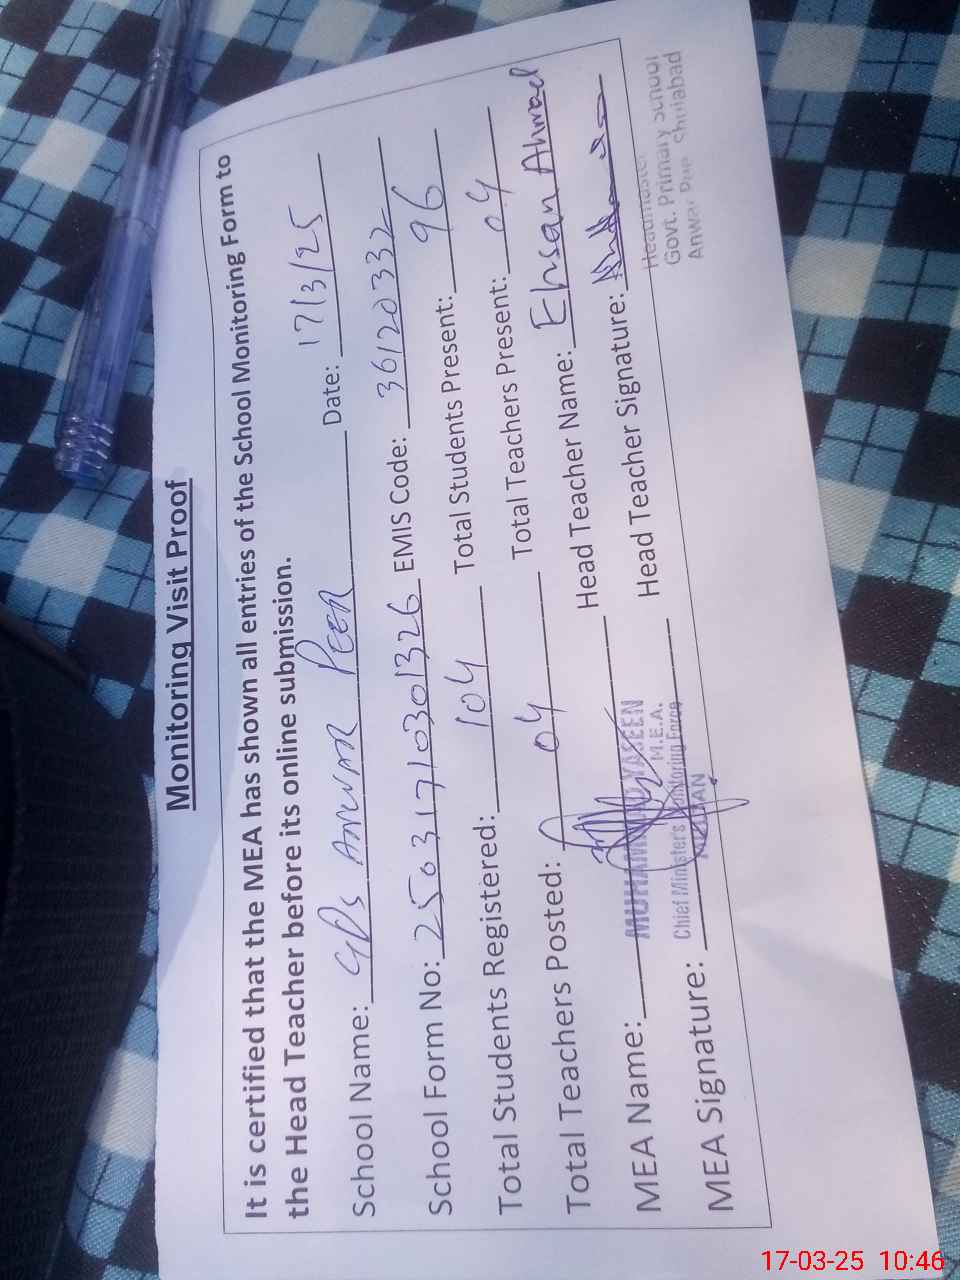 Monitoring Visit Proof
It is certified that the MEA has shown all entries of the School Monitoring Form to
the Head Teacher before its online submission.
School Name: GPS ANWAR PEER Date: 17/3/25
School Form No: 25031710301326 EMIS Code: 36120332
Total Students Registered: 104 Total Students Present: 96
Total Teachers Posted: 04 Total Teachers Present: 04
Head Teacher Name: Ehsan Ahmad
MEA Name: MUHAMMAD YASEEN
M.E.A.
Chief Minister's Monitoring Force
MEA Signature: Head Teacher Signature:
Headmaster
Govt. Primary School
Anwar Shujabad
17-03-25 10:46